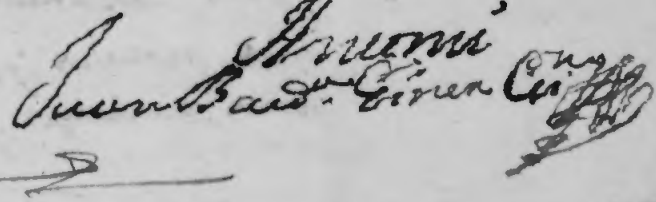 Ante mi
Juan Baut.ᵃ Giner